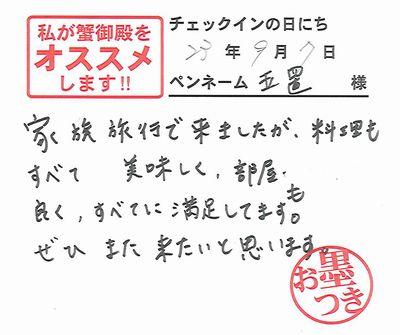 私が蟹御殿を
オススメ
します!!
チェックインの日にち
23年9月7日
ペンネーム 玉置 様
家族旅行で来ましたが、料理も
すべて 美味しく、部屋も
良く、すべてに満足してます。
ぜひ また 来たいと思います。
お墨つき